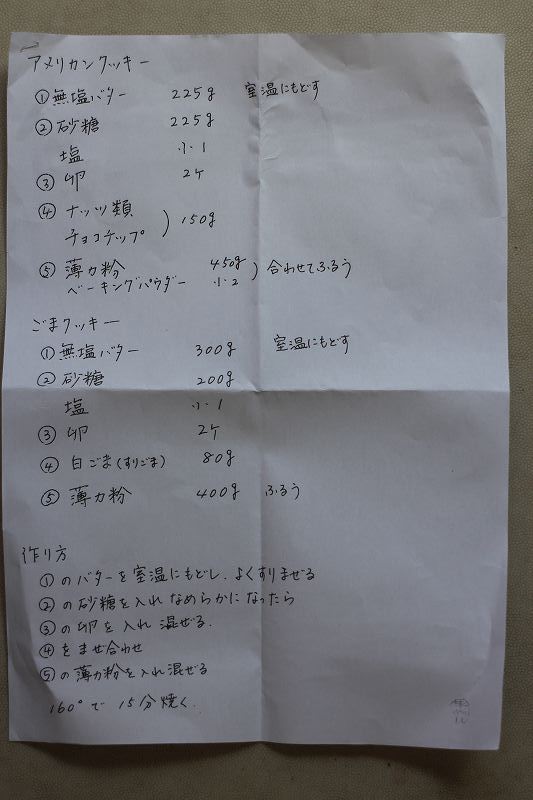 アメリカンクッキー
①無塩バター 225g 室温にもどす
②砂糖 225g
塩 小1
③卵 2ケ
④ナッツ類
チョコチップ ) 150g
⑤薄力粉 450g
ベーキングパウダー 小2 ) 合わせてふるう
ごまクッキー
①無塩バター 300g 室温にもどす
②砂糖 200g
塩 小1
③卵 2ケ
④白ごま(すりごま) 80g
⑤薄力粉 400g ふるう
作り方
①のバターを室温にもどし、よくすりまぜる
②の砂糖を入れ なめらかになったら
③の卵を入れ 混ぜる.
④をまぜ合わせ
⑤の薄力粉を入れ混ぜる
160°で 15分焼く.